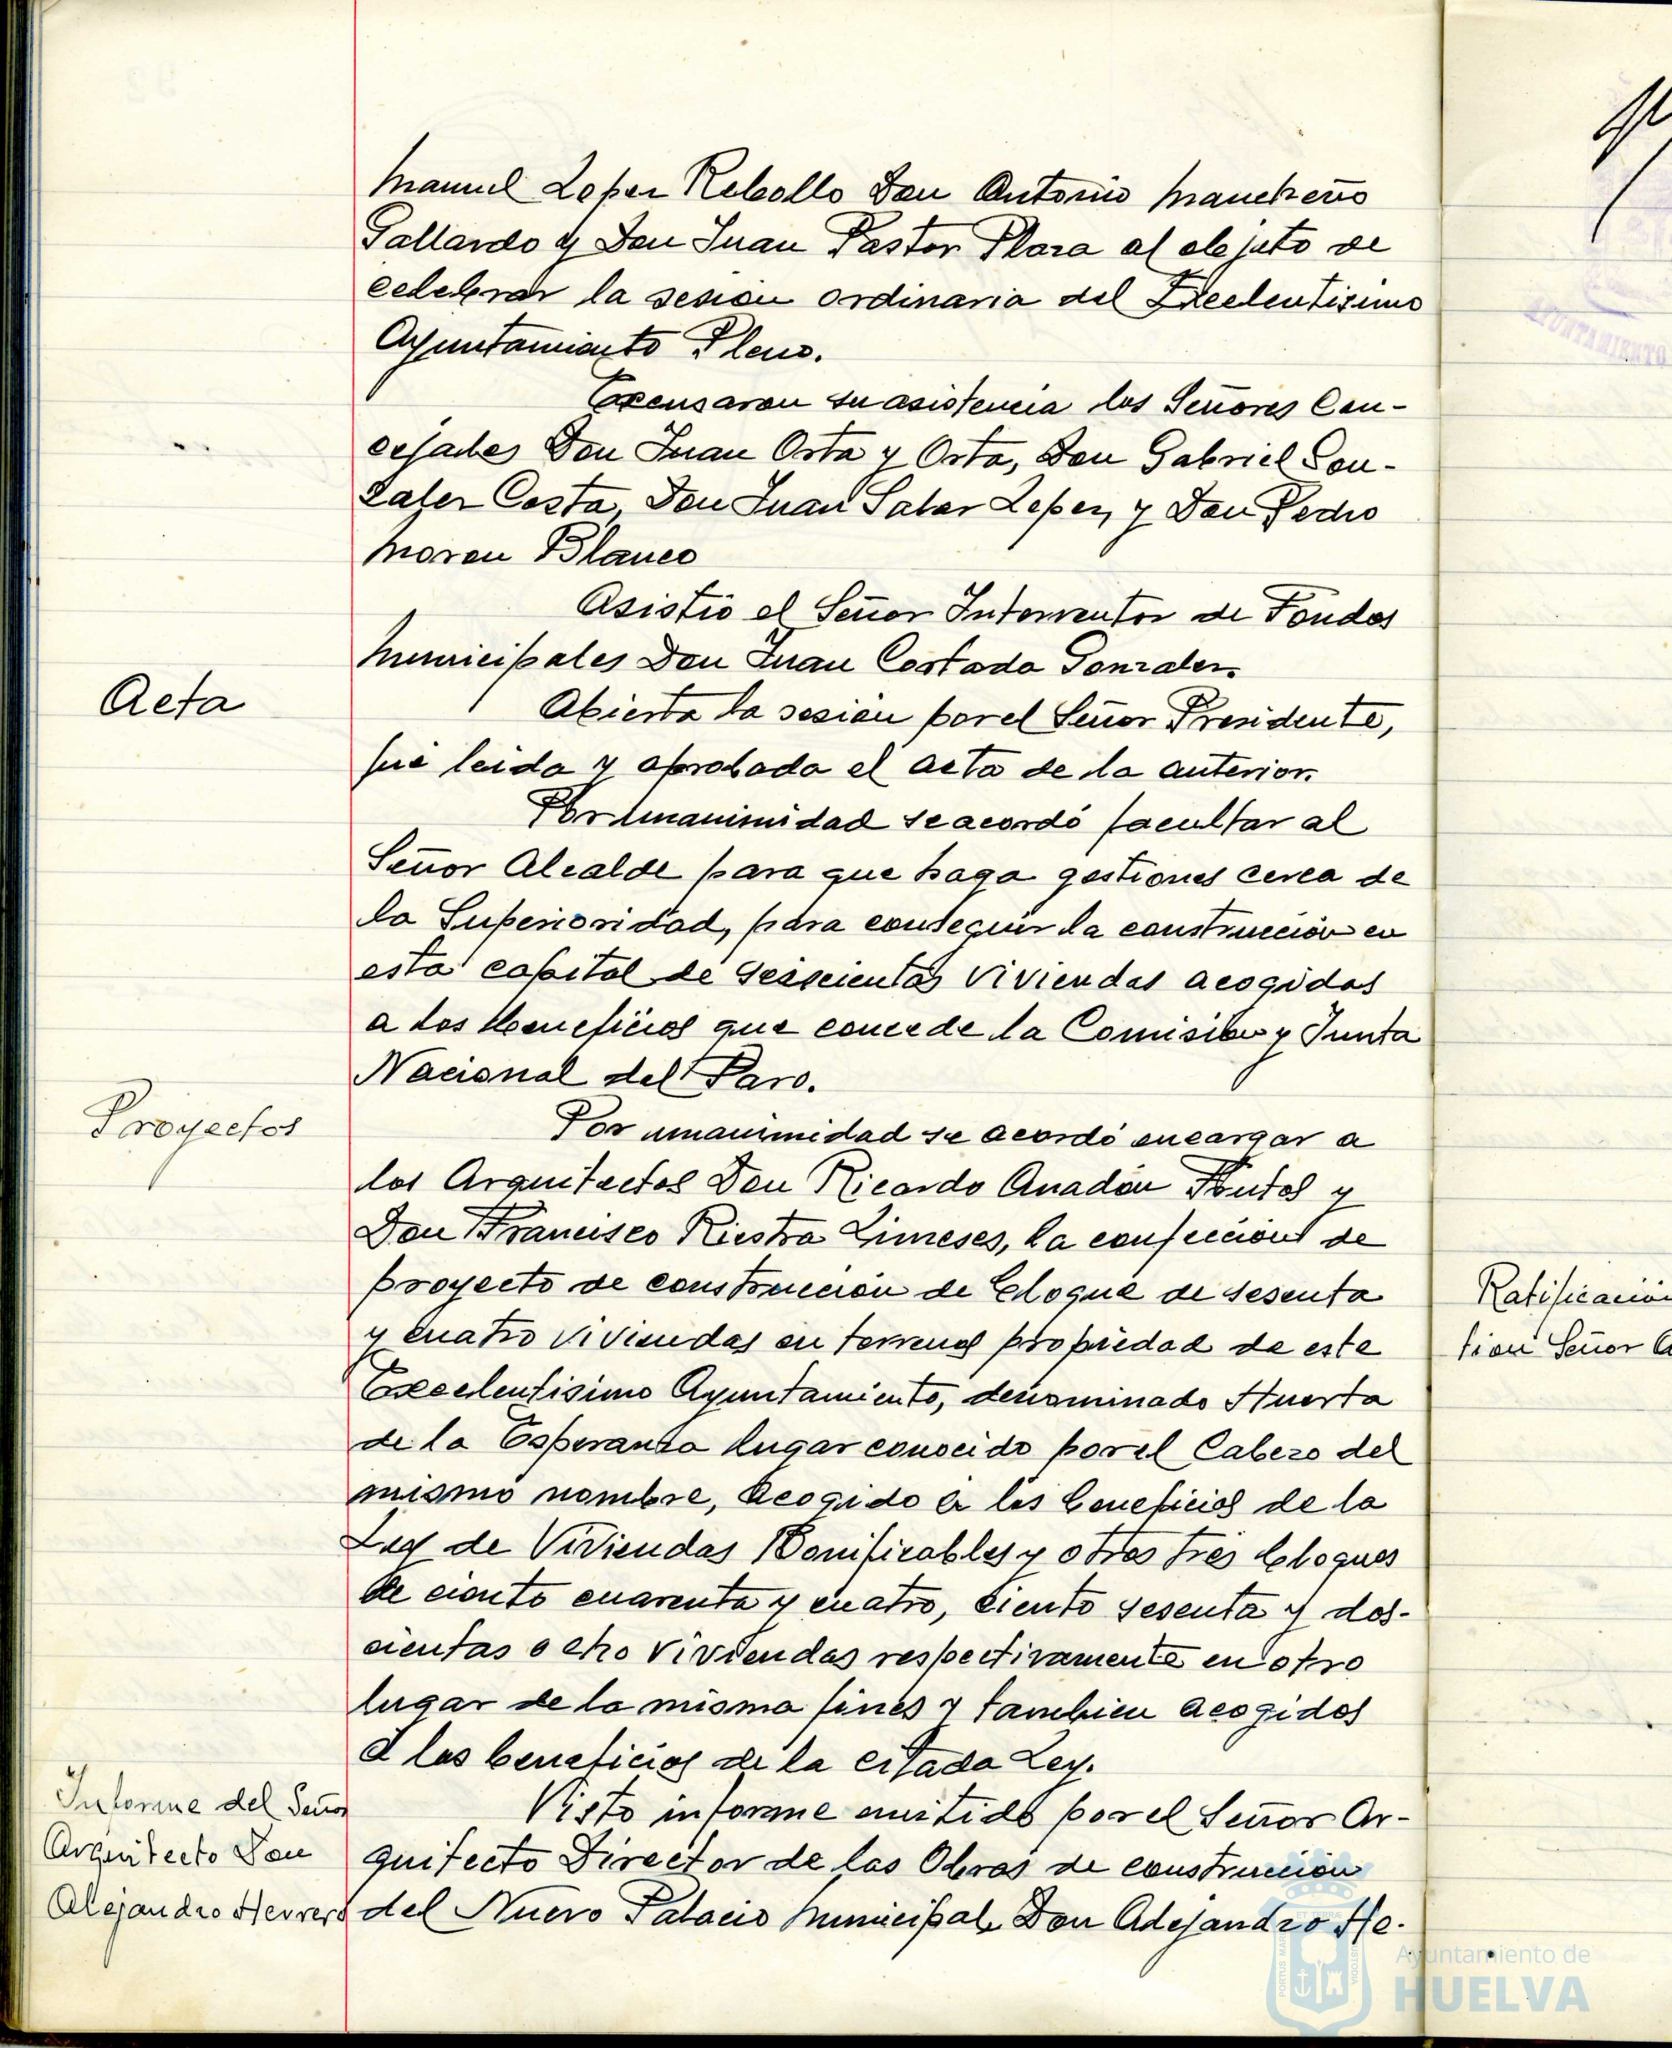 Manuel Lopez Rebollo Don Antonio Mancheño
Gallardo y Don Juan Pastor Plaza al objeto de
celebrar la sesion ordinaria del Excelentisimo
Ayuntamiento Pleno.
Excusaron su asistencia los Señores Con-
cejales Don Juan Orta y Orta, Don Gabriel Gon-
zalez Costa, Don Juan Salas Lopez, y Don Pedro
Moron Blanco
Asistió el Señor Interventor de Fondos
Municipales Don Juan Gonzalez.
Acta
Abierta la sesion por el Señor Presidente,
fué leida y aprobada el acta de la anterior.
Por unanimidad se acordó facultar al
Señor Alcalde para que haga gestiones cerca de
la Superioridad, para conseguir la construcción en
esta capital de seiscientas viviendas acogidas
a los beneficios que concede la Comision y Junta
Nacional del Paro.
Proyectos
Por unanimidad se acordó encargar a
los Arquitectos Don Ricardo Anadón Frutos y
Don Francisco Riestra Limeses, la confección de
proyecto de construcción de bloque de sesenta
y cuatro viviendas en terrenos propiedad de este
Excelentisimo Ayuntamiento, denominado Huerta
de la Esperanza lugar conocido por el Cabezo del
mismo nombre, acogido a los beneficios de la
Ley de Viviendas Bonificables y otros tres bloques
de ciento cuarenta y cuatro, ciento sesenta y dos-
cientas ocho viviendas respectivamente en otro
lugar de la misma finca y tambien acogidos
a los beneficios de la citada Ley.
Informe del Señor
Arquitecto Don
Alejandro Herrero
Visto informe emitido por el Señor Ar-
quitecto Director de las Obras de construcción
del Nuevo Palacio Municipal, Don Alejandro He-
Ratificación
Señor
Ayuntamiento de
HUELVA